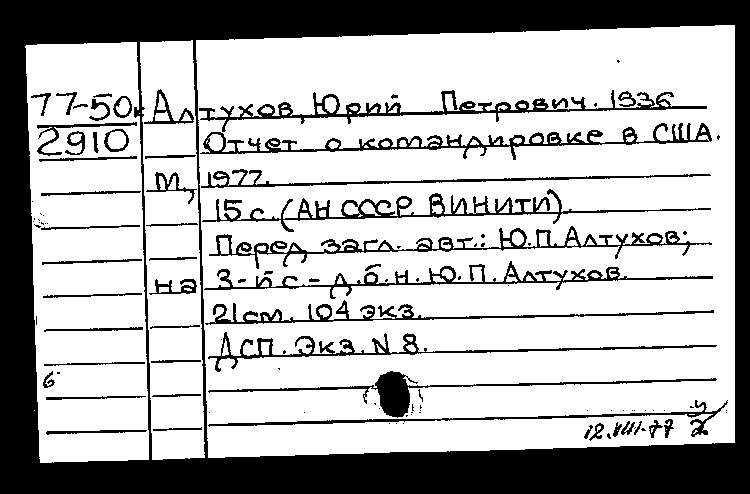 77-50к Алтухов, Юрий Петрович. 1936
2910 Отчет о командировке в США.
М., 1977.
15 с. (АН СССР. ВИНИТИ).
Перед загл. авт.: Ю.П. Алтухов;
на 3-й с. - д.б.н. Ю.П. Алтухов.
21 см. 104 экз.
ДСП. Экз. N 8.
б
12.VIII-77